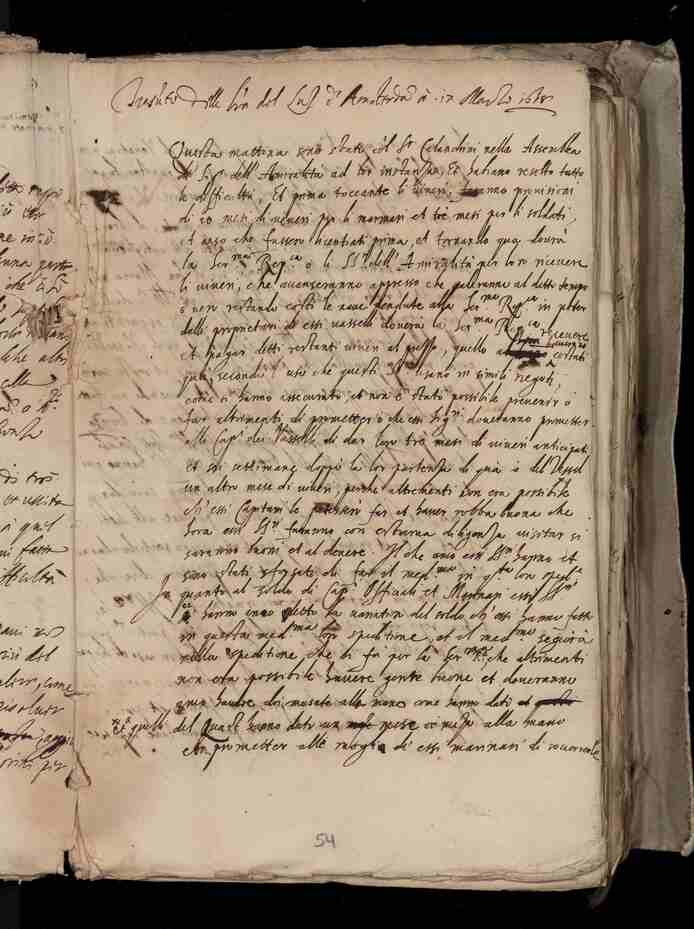 Questa mattina sono stato col Sr Calandrini nella Assemblea
dell' Amiralità ad lor instanza, Et habiano resolto tutte
le difficultà, Et prima toccante li viveri, faranno provisioni
di mesi di viveri per li marinari et tre mesi per li soldati,
et caso che fussero licentiati prima, et tornando qua dourà
la Ser.ma Rep.ca o li SS.ri dell' Amiralità per loro ricevere
li viveri, che avanseranno appresso che saleranno al detto tempo
o vero restando costì le nave vendute alla Ser.ma Rep.ca in poter
delli proprietari di essi vasselli doverà la Ser.ma Rep.ca ricevere
et pagar detti restanti viveri al prezzo, quello costati
qui, secondo l' uso che questi usano in simili negoti,
come ci hanno assicurato, et non è stato possibile prevenir o
far altrimenti di prometter che essi Sig.ri doveranno prometter
alli Cap.i dei Vasselli di dar lor tre mesi di viveri anticipati
et sei settimane doppò la lor partenza di qua o del Texel
un altro mese di viveri, perche altrimenti non era possibile
ch'essi Capitani le far et haver robba buona che
hora essi faranno con estrema diligenza visitar si
saranno buoni et al dovere. Il che anco con hanno et
sono stati sforzati di far il med.mo in
In quanto al soldo di Cap.i Officiali et Marinari essi
hanno detto la del soldo ch'essi hanno fatto
in questa med.ma lor speditione, et il med.mo seguirà
nella speditione, che si fa per la Ser.ma che altrimenti
non era possibile havere gente buone et doveranno
haver doi mesate alla mano come hanno dati
et quelli del Quast hanno dato un mese et mezo alla mano
et prometter alle moglie di essi marinari di
54